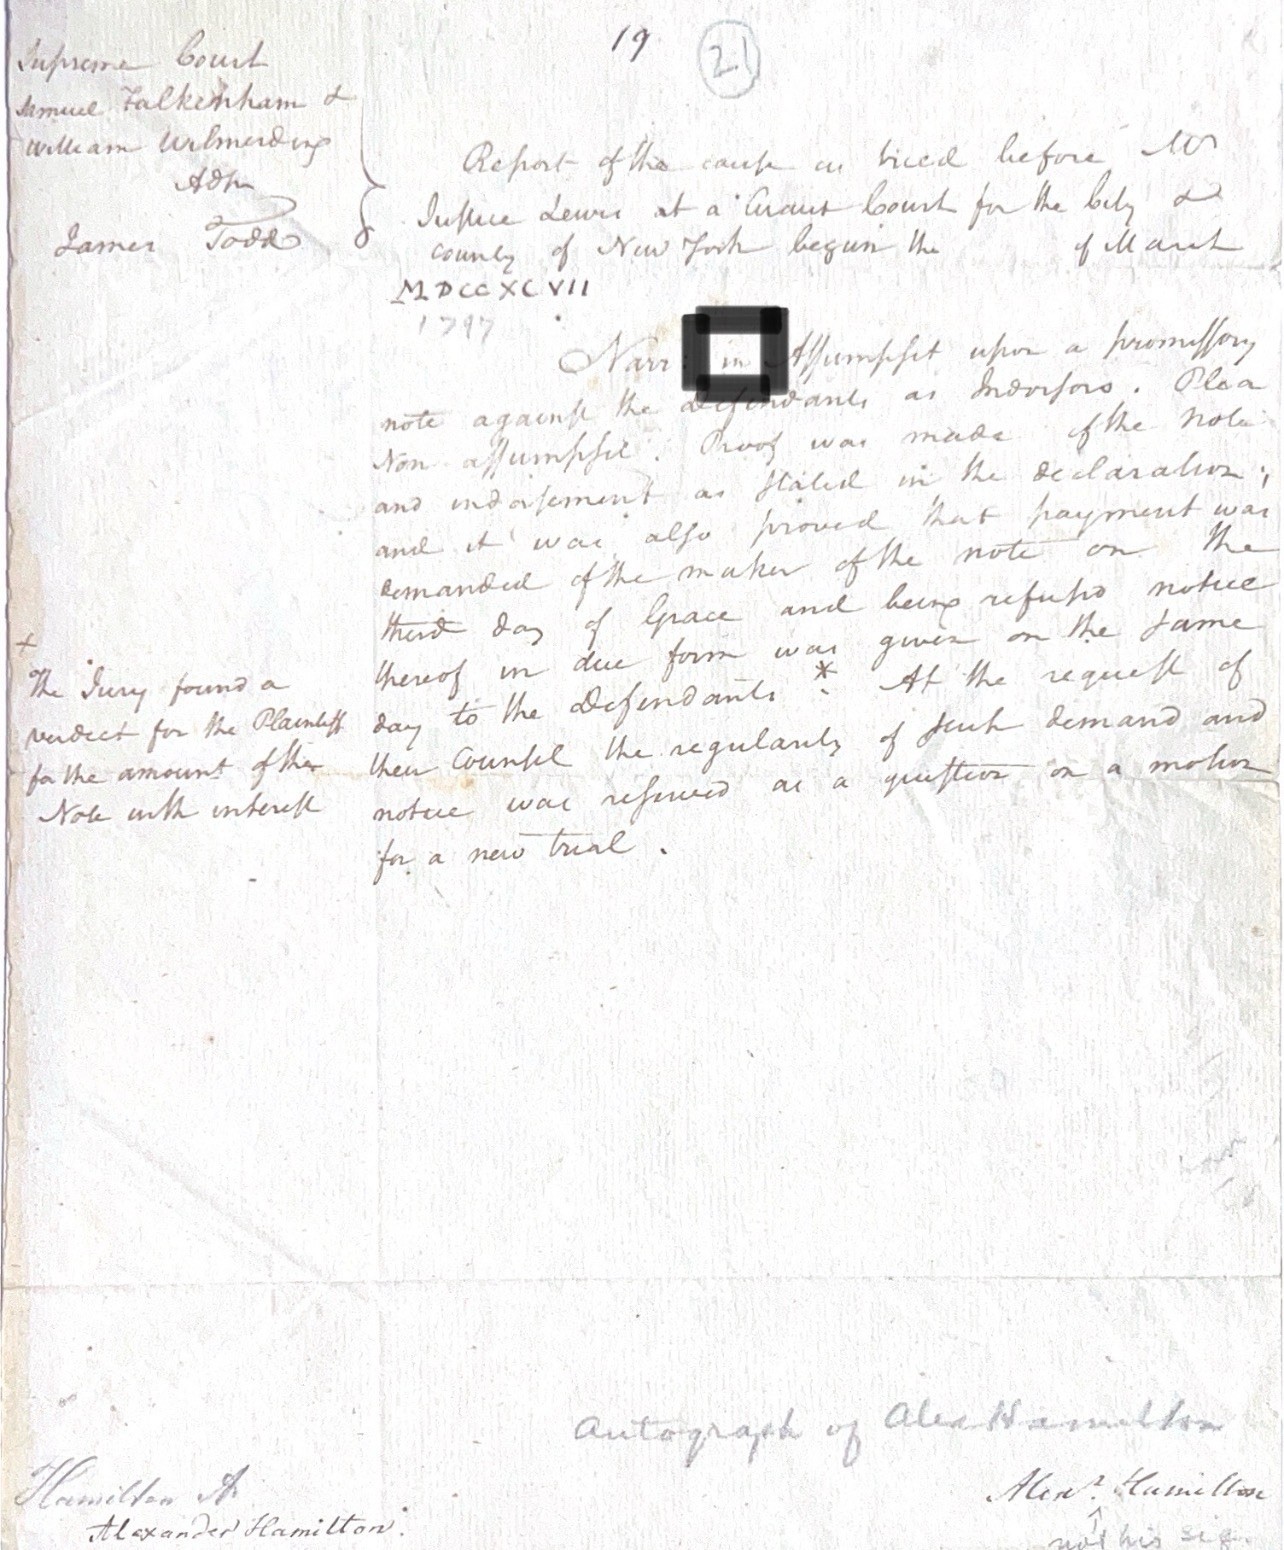 19
21
Supreme Court
Samuel Falkenham &
William Wilmerding
Adsm
James Todd
Report of the cause as tried before Mr
Justice Lewis at a Circuit Court for the City &
County of New York begun the of March
MDCCXCVII
1797
Narr in Assumpsit upon a promissory
note against the defendants as Indorsors. Plea
Non assumpsit. Proof was made of the Note
and indorsement as stated in the declaration;
and it was also proved that payment was
demanded of the maker of the note on the
third day of Grace and being refused notice
thereof in due form was given on the same
day to the defendants *. At the request of
their Counsel the regularity of such demand and
notice was reserved as a question on a motion
for a new trial.
+
The Jury found a
verdict for the Plaintiff
for the amount of the
Note with interest
Autograph of Alex Hamilton
Hamilton A.
Alexander Hamilton.
Alexr. Hamilton
not his sig.